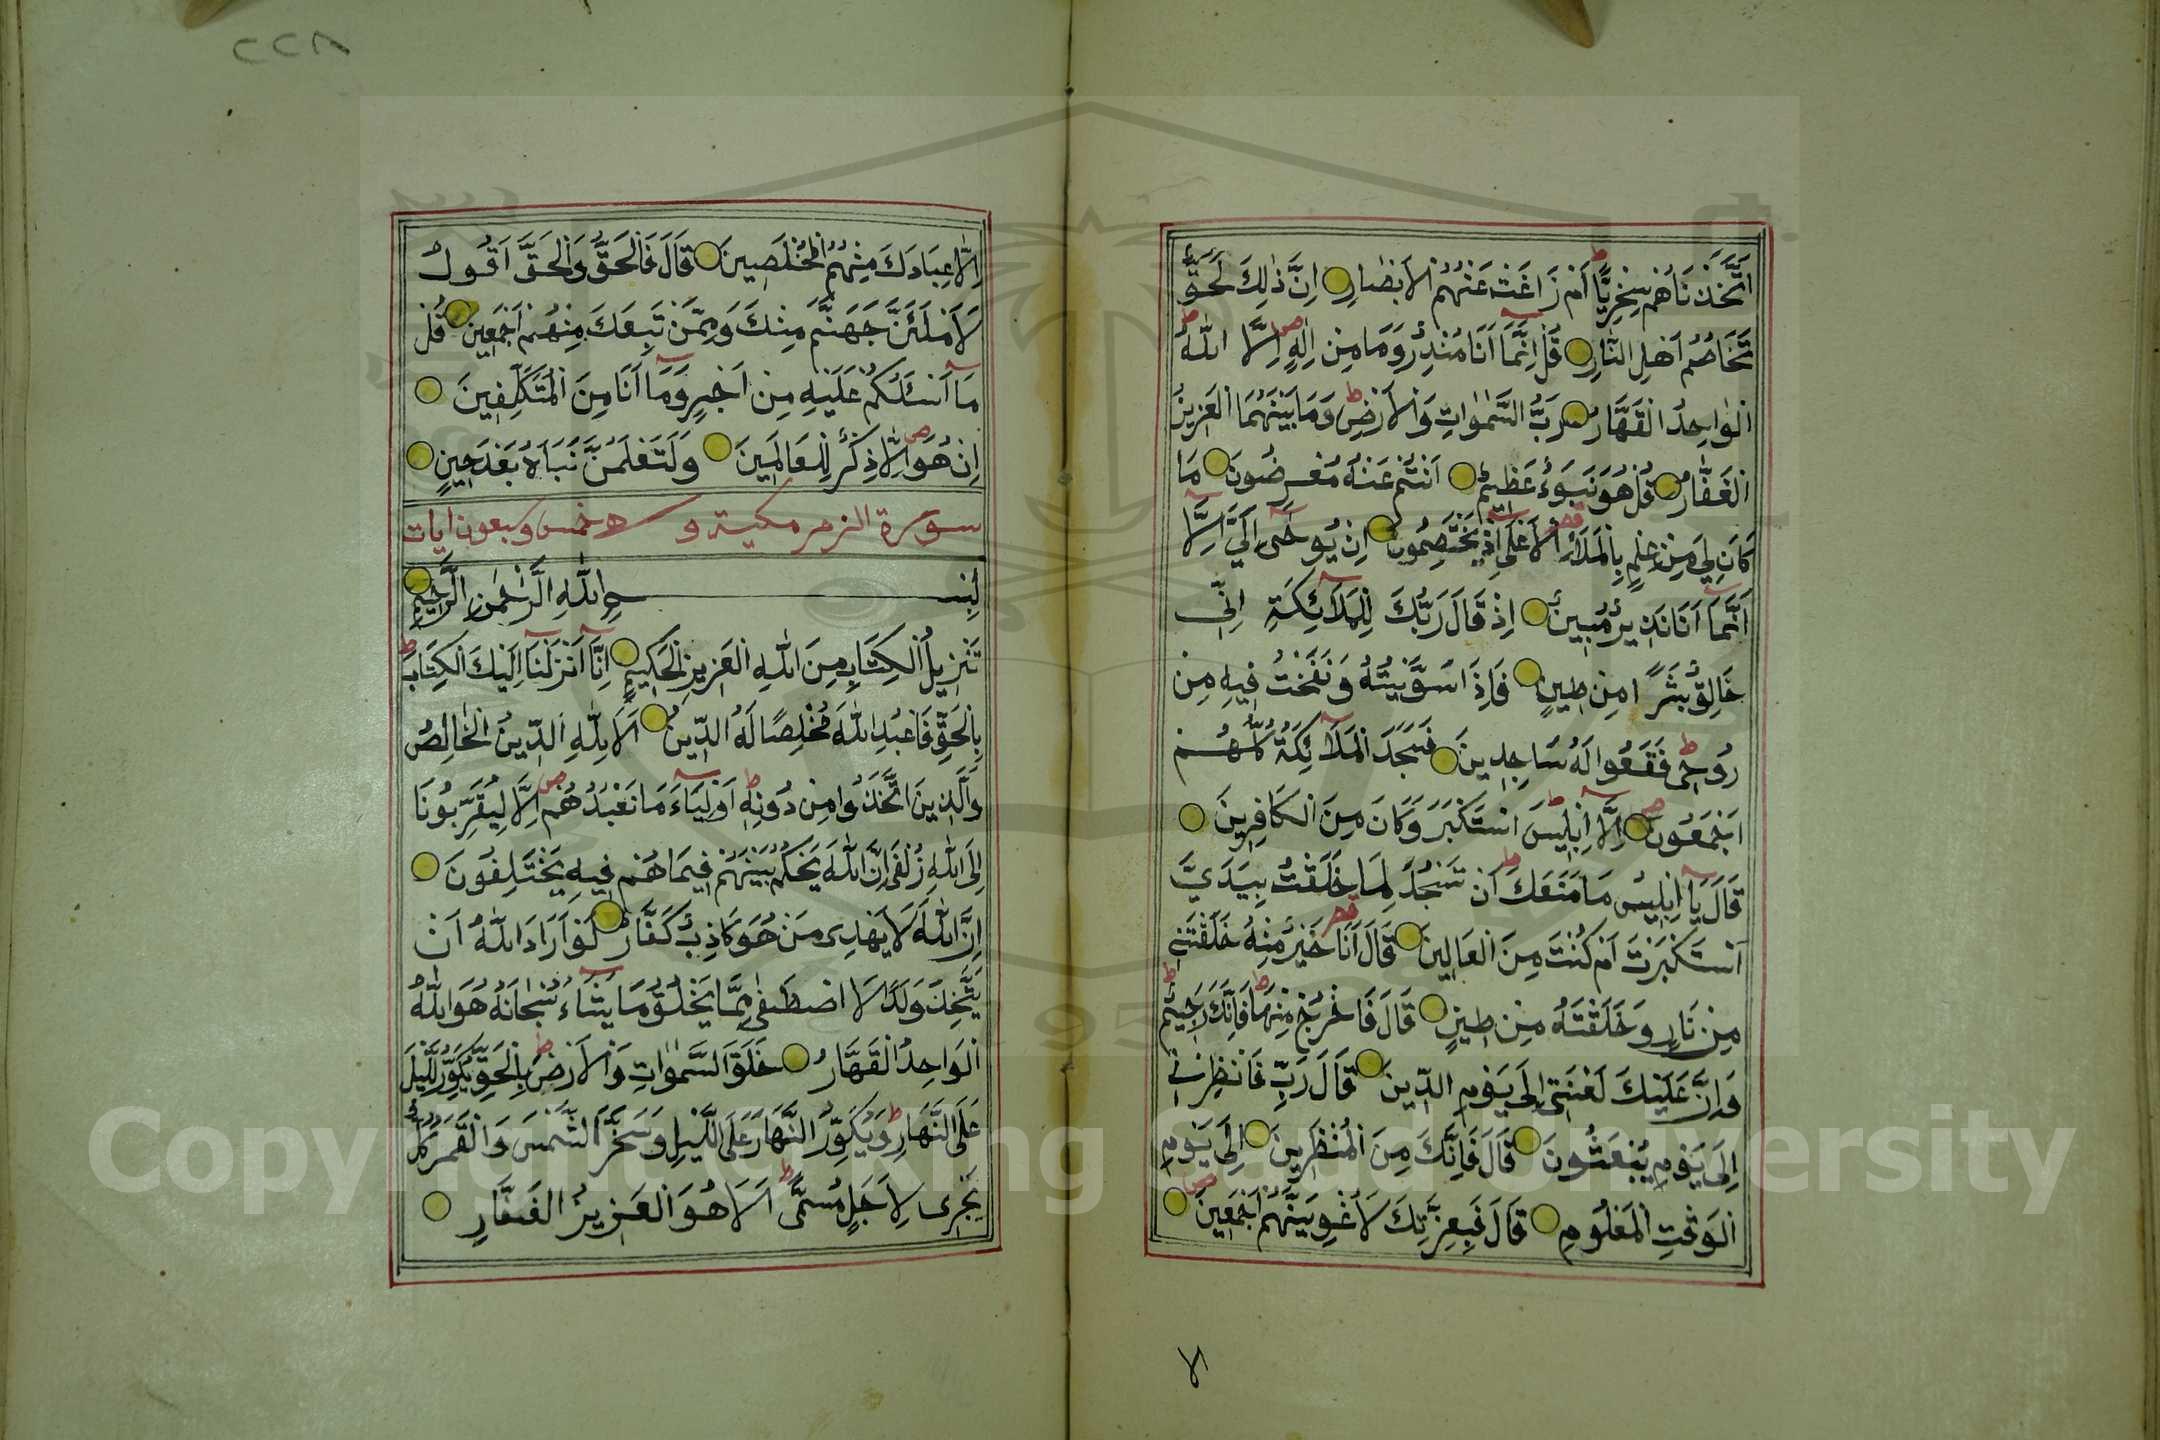 اَتَّخَذْنَاهُمْ سِخْرِيًّا اَمْ زَاغَتْ عَنْهُمُ الْاَبْصَارُ اِنَّ ذٰلِكَ لَحَقٌّ
تَخَاصُمُ اَهْلِ النَّارِ قُلْ اِنَّمَا اَنَا مُنْذِرٌ وَمَا مِنْ اِلٰهٍ اِلَّا اللّٰهُ
الْوَاحِدُ الْقَهَّارُ رَبُّ السَّمٰوَاتِ وَالْاَرْضِ وَمَا بَيْنَهُمَا الْعَزِيزُ
الْغَفَّارُ قُلْ هُوَ نَبَؤٌ عَظِيمٌ اَنْتُمْ عَنْهُ مُعْرِضُونَ مَا
كَانَ لِيَ مِنْ عِلْمٍ بِالْمَلَاِ الْاَعْلٰى اِذْ يَخْتَصِمُونَ اِنْ يُوحٰى اِلَيَّ اِلَّا
اَنَّمَا اَنَا نَذِيرٌ مُبِينٌ اِذْ قَالَ رَبُّكَ لِلْمَلَائِكَةِ اِنِّي
خَالِقٌ بَشَرًا مِنْ طِينٍ فَاِذَا سَوَّيْتُهُ وَنَفَخْتُ فِيهِ مِنْ
رُوحِي فَقَعُوا لَهُ سَاجِدِينَ فَسَجَدَ الْمَلَائِكَةُ كُلُّهُمْ
اَجْمَعُونَ اِلَّا اِبْلِيسَ اسْتَكْبَرَ وَكَانَ مِنَ الْكَافِرِينَ
قَالَ يَا اِبْلِيسُ مَا مَنَعَكَ اَنْ تَسْجُدَ لِمَا خَلَقْتُ بِيَدَيَّ
اَسْتَكْبَرْتَ اَمْ كُنْتَ مِنَ الْعَالِينَ قَالَ اَنَا خَيْرٌ مِنْهُ خَلَقْتَنِي
مِنْ نَارٍ وَخَلَقْتَهُ مِنْ طِينٍ قَالَ فَاخْرُجْ مِنْهَا فَاِنَّكَ رَجِيمٌ
وَاِنَّ عَلَيْكَ لَعْنَتِي اِلٰى يَوْمِ الدِّينِ قَالَ رَبِّ فَانْظِرْنِي
اِلٰى يَوْمِ يُبْعَثُونَ قَالَ فَاِنَّكَ مِنَ الْمُنْظَرِينَ اِلٰى يَوْمِ
الْوَقْتِ الْمَعْلُومِ قَالَ فَبِعِزَّتِكَ لَاُغْوِيَنَّهُمْ اَجْمَعِينَ
الا
٢٢٨
اِلَّا عِبَادَكَ مِنْهُمُ الْمُخْلَصِينَ قَالَ فَالْحَقُّ وَالْحَقَّ اَقُولُ
لَاَمْلَئَنَّ جَهَنَّمَ مِنْكَ وَمِمَّنْ تَبِعَكَ مِنْهُمْ اَجْمَعِينَ قُلْ
مَا اَسْئَلُكُمْ عَلَيْهِ مِنْ اَجْرٍ وَمَا اَنَا مِنَ الْمُتَكَلِّفِينَ
اِنْ هُوَ اِلَّا ذِكْرٌ لِلْعَالَمِينَ وَلَتَعْلَمُنَّ نَبَاَهُ بَعْدَ حِينٍ
سورة الزمر مكية وهى خمس وسبعون ايات
بِسْمِ اللّٰهِ الرَّحْمٰنِ الرَّحِيمِ
تَنْزِيلُ الْكِتَابِ مِنَ اللّٰهِ الْعَزِيزِ الْحَكِيمِ اِنَّا اَنْزَلْنَا اِلَيْكَ الْكِتَابَ
بِالْحَقِّ فَاعْبُدِ اللّٰهَ مُخْلِصًا لَهُ الدِّينَ اَلَا لِلّٰهِ الدِّينُ الْخَالِصُ
وَالَّذِينَ اتَّخَذُوا مِنْ دُونِهِ اَوْلِيَاءَ مَا نَعْبُدُهُمْ اِلَّا لِيُقَرِّبُونَا
اِلَى اللّٰهِ زُلْفٰى اِنَّ اللّٰهَ يَحْكُمُ بَيْنَهُمْ فِيمَا هُمْ فِيهِ يَخْتَلِفُونَ
اِنَّ اللّٰهَ لَا يَهْدِى مَنْ هُوَ كَاذِبٌ كَفَّارٌ لَوْ اَرَادَ اللّٰهُ اَنْ
يَتَّخِذَ وَلَدًا لَا اصْطَفٰى مِمَّا يَخْلُقُ مَا يَشَاءُ سُبْحَانَهُ هُوَ اللّٰهُ
الْوَاحِدُ الْقَهَّارُ خَلَقَ السَّمٰوَاتِ وَالْاَرْضَ بِالْحَقِّ يُكَوِّرُ اللَّيْلَ
عَلَى النَّهَارِ وَيُكَوِّرُ النَّهَارَ عَلَى اللَّيْلِ وَسَخَّرَ الشَّمْسَ وَالْقَمَرَ كُلٌّ
يَجْرِى لِاَجَلٍ مُسَمًّى اَلَا هُوَ الْعَزِيزُ الْغَفَّارُ
Copyright © King Saud University